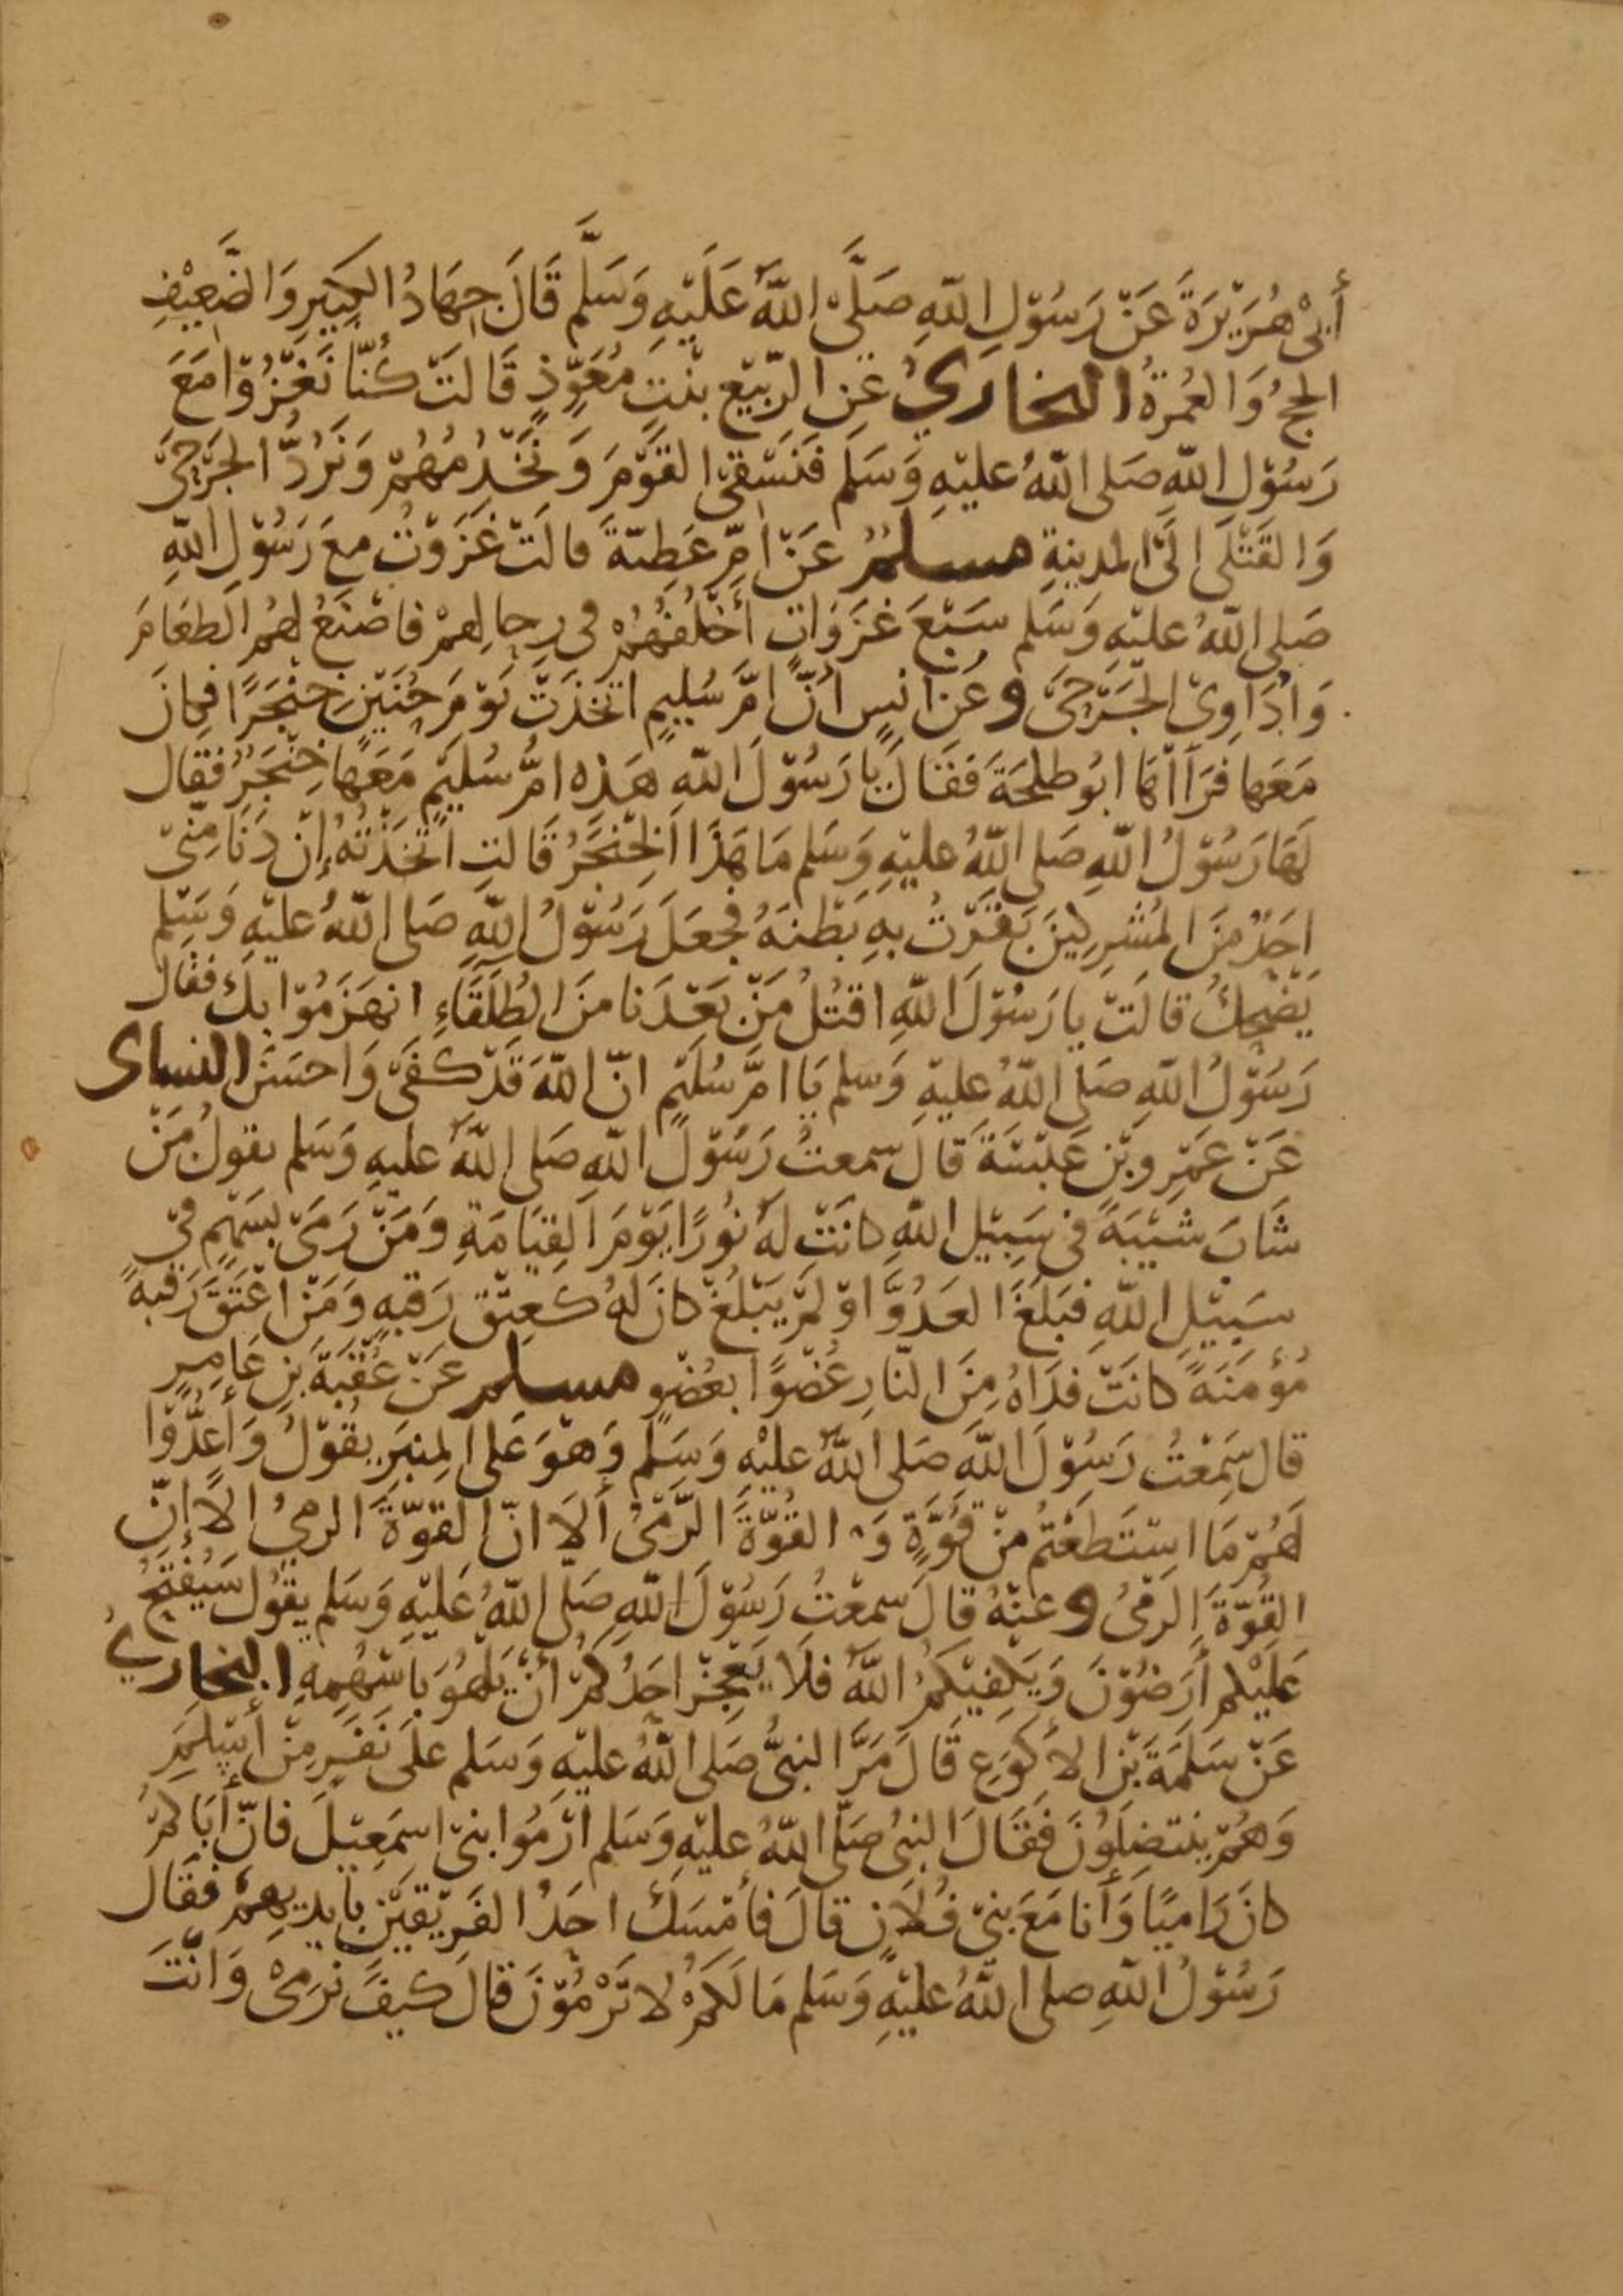 أَبِي هُرَيْرَةَ عَنْ رَسُوْلِ اللّٰهِ صَلَّى اللّٰهُ عَلَيْهِ وَسَلَّم قَالَ جِهَادُ الكَبِيرِ وَالضَّعِيْفِ
الحجُّ وَالعُمرَةُ البخاريُّ عَنِ الرّبيّع بنْتِ مُعَوِّذٍ قَالَتْ كُنَّا نَغْزُوْا مَعَ
رَسُوْلِ اللّٰهِ صَلى اللّٰهُ عليْهِ وَسَلم فَنَسْقِي القَوْمَ وَنَخْدِمُهُمْ وَنَرُدُّ الجَرْحَى
وَالقَتْلَى الَى المدينةِ مسلمٌ عَنْ امِّ عَطِيّةَ قالَتْ غَزَوْتُ معَ رَسُوْلِ اللّٰهِ
صَلى اللّٰهُ عليْهِ وَسَلم سَبْعَ غَزَوَاتٍ أَخْلُفُهُمْ في رحالِهمْ فاصْنَعُ لهمُ الطعَامَ
وَادَاوِي الجَرْحَى وعَن انسٍ انَّ امَّ سُليمٍ اتّخذَتْ يَوْمَ حُنَيْنٍ خِنْجَرًا فكانَ
مَعَها فَرَآهَا ابُو طلْحَةَ فَقَالَ يا رَسُوْلَ اللّٰهِ هَذِه امُّ سُليْمٍ مَعَهَا خِنْجَرٌ فقال
لَهَا رَسُوْلُ اللّٰهِ صَلى اللّٰهُ عليْهِ وَسَلم مَا هَذَا الخِنْجَرُ قَالتِ اتّخَذْتُهُ إنْ دَنَا مِنّي
احَدٌ مِنَ المُشْرِكينَ بَقَرْتُ بهِ بَطْنَهُ فجعَلَ رَسُوْلُ اللّٰهِ صَلى اللّٰهُ عليْهِ وَسَلم
يَضْحِكُ قالَتْ يا رَسُوْلَ اللّٰهِ اقتُلُ مَنْ بَعْدَنا منَ الطُلَقَاءِ انهَزَمُوْا بِكَ فقال
رَسُوْلُ اللّٰهِ صَلى اللّٰهُ عليْهِ وَسلم يَا امَّ سُلَيْمٍ انّ اللّٰهَ قَدْ كَفَى وَاحسَنَ النساي
عَنْ عَمْرِو بْنِ عَبْسَةَ قالَ سمعتُ رَسُوْلَ اللّٰهِ صَلى اللّٰهُ عليهِ وَسَلم يقولُ مَنْ
شَابَ شَيْبَةً في سَبِيْلِ اللّٰهِ كانَتْ لَهُ نُوْرًا يَوْمَ القِيَامَةِ وَمَنْ رَمَى بسَهْمٍ فِي
سَبِيْلِ اللّٰهِ فبَلَغَ العَدُوَّ اوْ لَمْ يَبْلُغْ كانَ لَهُ كعِتْقِ رَقبَةٍ وَمَنْ اعْتَقَ رَقبةً
مُؤْمنَةً كانَتْ فدَاهُ مِنَ النّارِ عُضْوًا بعُضْوٍ مسلم عَنْ عُقْبَةَ بنِ عَامِرٍ
قال سَمِعْتُ رَسُوْلَ اللّٰهِ صَلى اللّٰهُ عليْهِ وَسَلم وَهْوَ عَلى المِنبَرِ يقُوْلُ وَأَعِدُّوْا
لَهُمْ مَا اسْتَطعْتُمْ منْ قُوَّةٍ وَ القُوّةَ الرَّمْيُ أَلَا انّ القوّةَ الرميُ الَا إنّ
القُوّةَ الرَميُ وعنْهُ قالَ سمعْتُ رَسُوْلَ اللّٰهِ صَلّى اللّٰهُ عَليْهِ وَسَلم يقُول سَيُفْتَحُ
عَلَيْكم أَرَضُوْنَ وَيَكفيْكمُ اللّٰهُ فلَا يَعْجِزْ احَدُكُمْ أنْ يَلهُوَ بَاسْهُمِهِ البخاريُّ
عَنْ سَلَمَةَ بْنِ الأكوَعِ قَالَ مَرَّ النبيُّ صَلى اللّٰهُ عليْهِ وَسَلم علَى نَفَرٍ مِنْ أَسْلمَ
وَهُمْ ينتضِلوُنَ فَقَالَ النبيُ صَلّى اللّٰهُ عليْهِ وَسَلم ارْمُوا بنيْ اسمَعِيْلَ فانّ أبَاكمْ
كانَ رَاميًا وَأَنا مَعَ بنيْ فُلَانٍ قالَ فأَمْسَكَ احَدُ الفَرِيْقيَنِ بأَيديهِمْ فقَال
رَسُوْلُ اللّٰهِ صلى اللّٰهُ عليْهِ وَسَلم مَا لَكمْ لا تَرْمُوْنَ قالَ كيفَ نرَمِيْ وَانْتَ